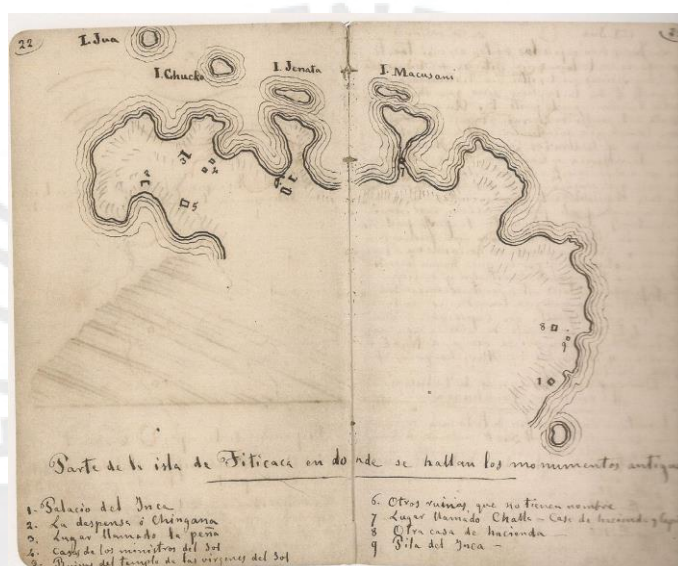 22
I. Jua
I. Chucko
I. Jenata
I. Macusani
2
3
4
5
6
7
8
9
1
Parte de la isla de Titicaca en donde se hallan los monumentos antigu
1. Palacio del Inca
2. La despensa ó Chingana
3. Lugar llamado la peña
4. Casas de los ministros del Sol
5. Ruinas del templo de las vírgenes del Sol
6. Otros ruinas que no tienen nombre
7 Lugar llamado Challa – Casa de hacienda y
8 Otra casa de hacienda –
9 Pila del Inca –